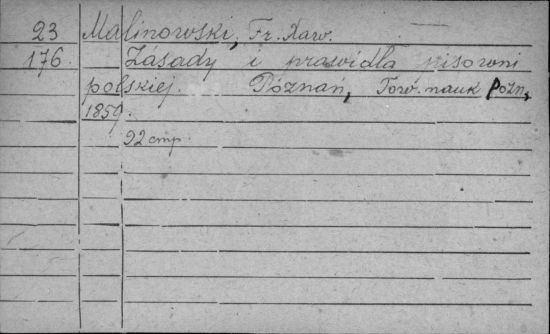 23 Malinowski, Fr. Xaw.
176. Zásady i prawidla pisowni
polskiej. Poznań, Tow. nauk Pozn,
1859.
92 cmp.